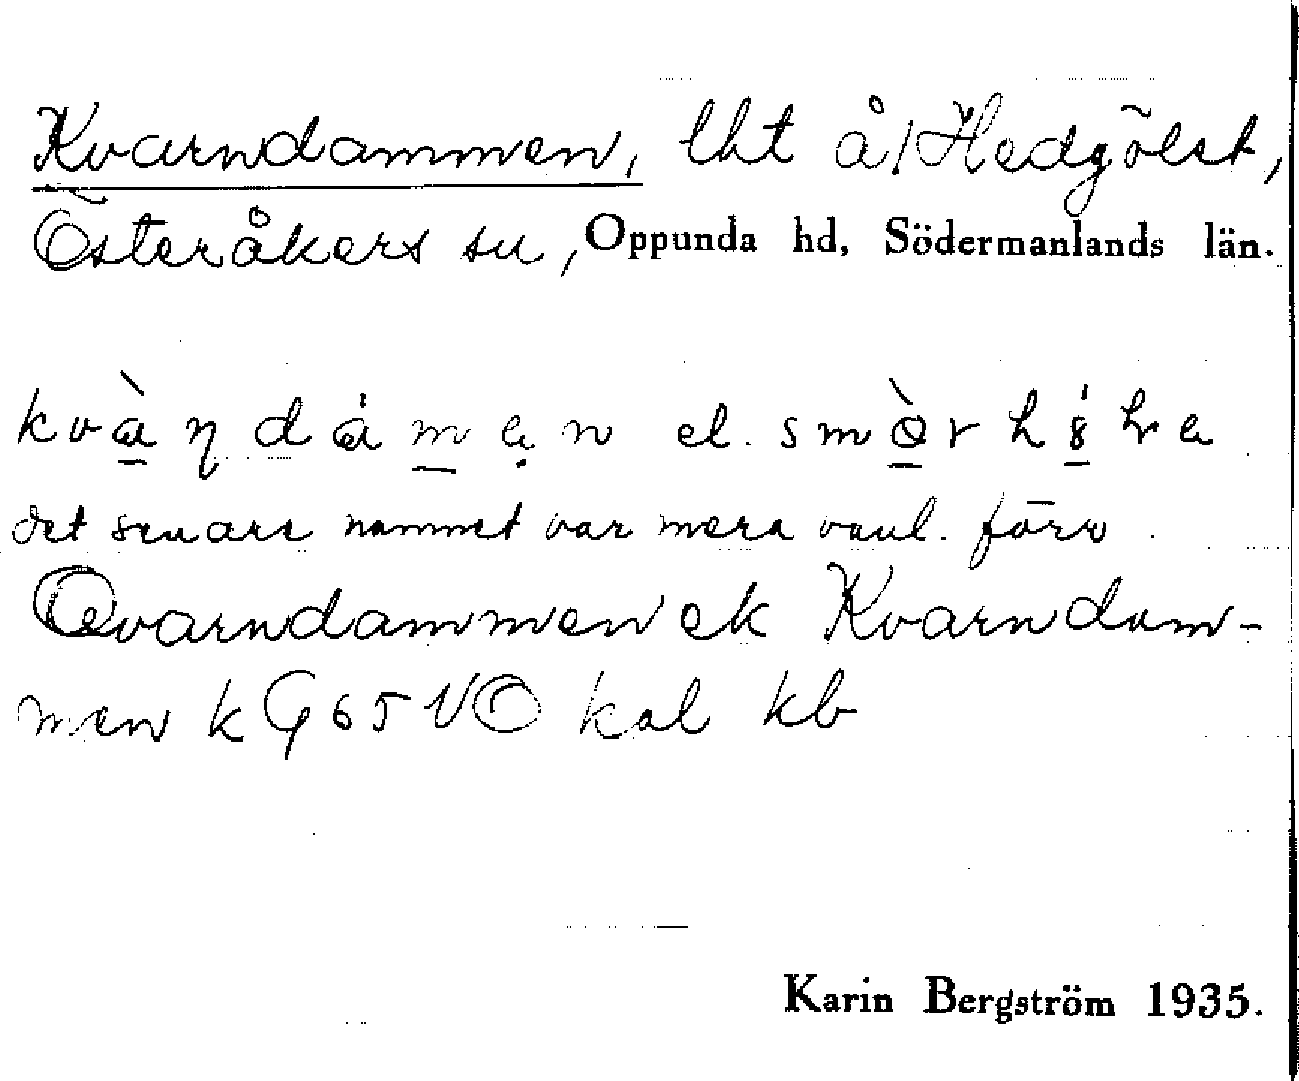 Kvarndammen, lht å/Hedgölst,
Österåkers sn, Oppunda hd, Södermanlands län.
kvàṇdámẹn el. smòrh
det senare namnet var mera vanl. förr.
Qvarndammen ek Kvarndam-
men k G65VÖ kal kb
Karin Bergström 1935.